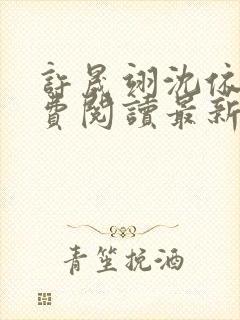 許晟翊沈依
費閱讀最新
青笙挽酒